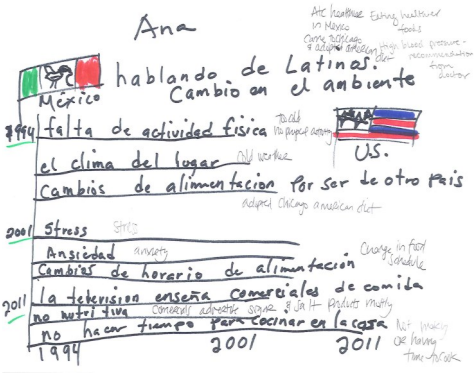 Ana
Ate healthier Eating healthier
in Mexico foods
Came to Chicago
& adopted american diet
High blood pressure -
recommendation
from
doctor
hablando de Latinos.
Cambio en el ambiente
México
1994 falta de actividad física
too cold
no physical activity
U.S.
el clima del lugar cold weather
Cambios de alimentacion por ser de otro pais
adopted Chicago american diet
2001 Stress stress
Ansiedad anxiety
Change in food
schedule
Cambios de horario de alimentación
2011 la television enseña comerciales de comida
no nutritiva Comercials advertise sugar & salt products mostly
no hacer tiempo para cocinar en la casa
Not making
or having
time to cook
1994 2001 2011